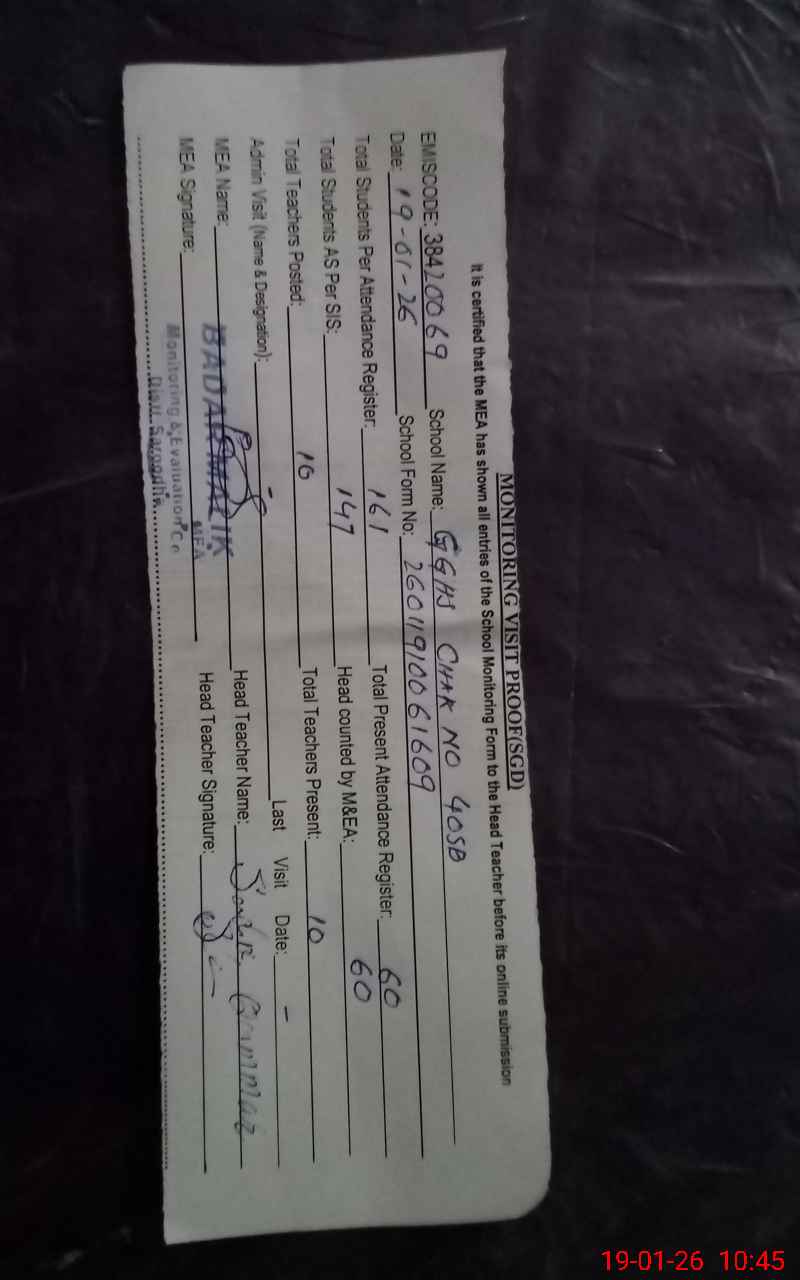 MONITORING VISIT PROOF(SGD)
It is certified that the MEA has shown all entries of the School Monitoring Form to the Head Teacher before its online submission
EMISCODE: 38420069 School Name: GGHS CHAK NO 40SB
Date: 19-01-26 School Form No: 26011910061609
Total Students Per Attendance Register: 161 Total Present Attendance Register: 60
Total Students AS Per SIS: 147 Head counted by M&EA: 60
Total Teachers Posted: 16 Total Teachers Present: 10
Admin Visit (Name & Designation): - Last Visit Date: -
MEA Name: BADAR MALIK Head Teacher Name:
MEA
MEA Signature: Head Teacher Signature:
Monitoring & Evaluation
Distt. Sargodha
19-01-26 10:45